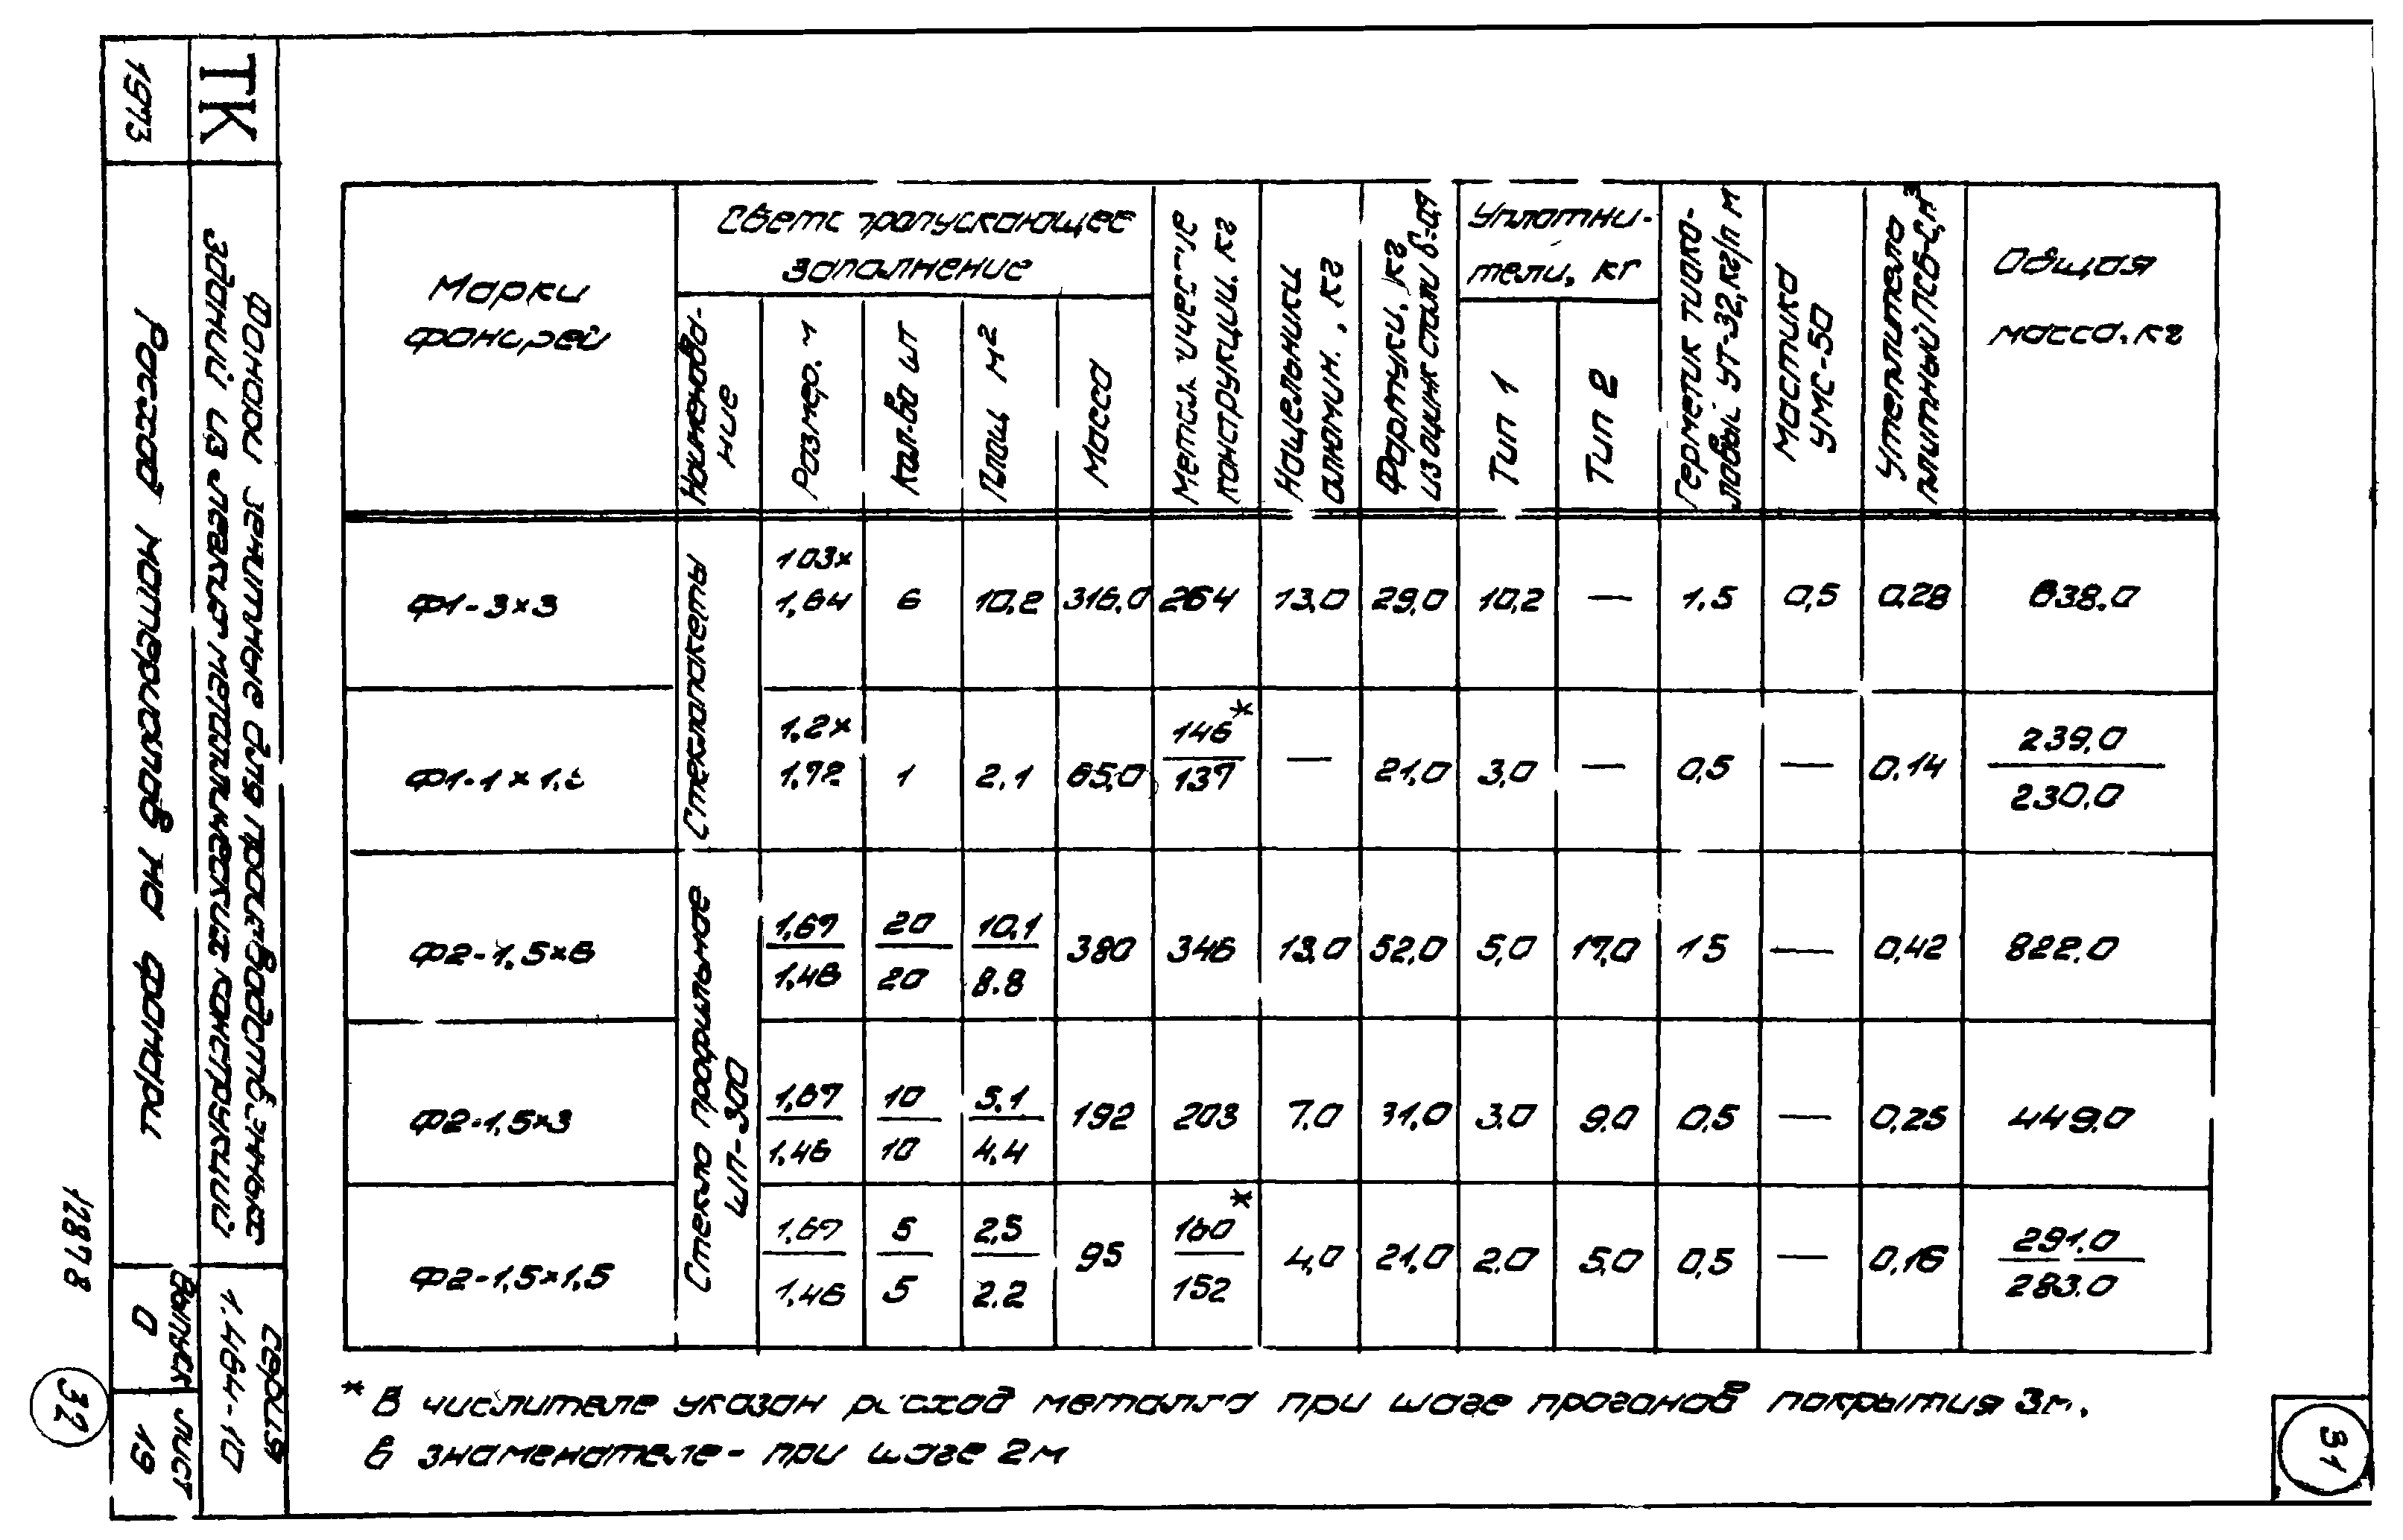 ТК
1973
Фонари зенитные для производственных
зданий из легких металлических конструкций
Расход материалов на фонари
Серия
1.464-10
Выпуск
0
Лист
19
12878
32
31
Марки
фонарей
Светопропускающее
заполнение
Наименова-
ние
Размер. м
Кол-во шт
Площ м²
Масса
Металлические
конструкции, кг
Нащельники
алюмин., кг
Фартуки, кг
из оцинк стали
Уплотни-
тели, кг
Тип 1
Тип 2
Герметик тиоко-
ловый УТ-32, кг/п м
Мастика
УМС-50
Утеплитель
плитный ПСБ-С, м³
Общая
масса, кг
Стеклопакеты
Стекло профильное
ШП-300
Ф1-3×3 1,03× 1,64 6 10,2 316,0 264 13,0 29,0 10,2 — 1,5 0,5 0,28 638.0
Ф1-1×1,5 1,2× 1,72 1 2,1 65,0 146*/137 — 21,0 3,0 — 0,5 — 0,14 239,0/230,0
Ф2-1,5×6 1,67/1,46 20/20 10,1/8.8 380 346 13,0 52,0 5,0 17,0 15 — 0,42 822.0
Ф2-1,5×3 1,67/1,46 10/10 5.1/4.4 192 203 7.0 31,0 3.0 9.0 0,5 — 0,25 449.0
Ф2-1,5×1,5 1,67/1,46 5/5 2,5/2.2 95 160*/152 4,0 21,0 2.0 5,0 0,5 — 0,16 291.0/283.0
* В числителе указан расход металла при шаге прогонов покрытия 3м,
в знаменателе - при шаге 2м